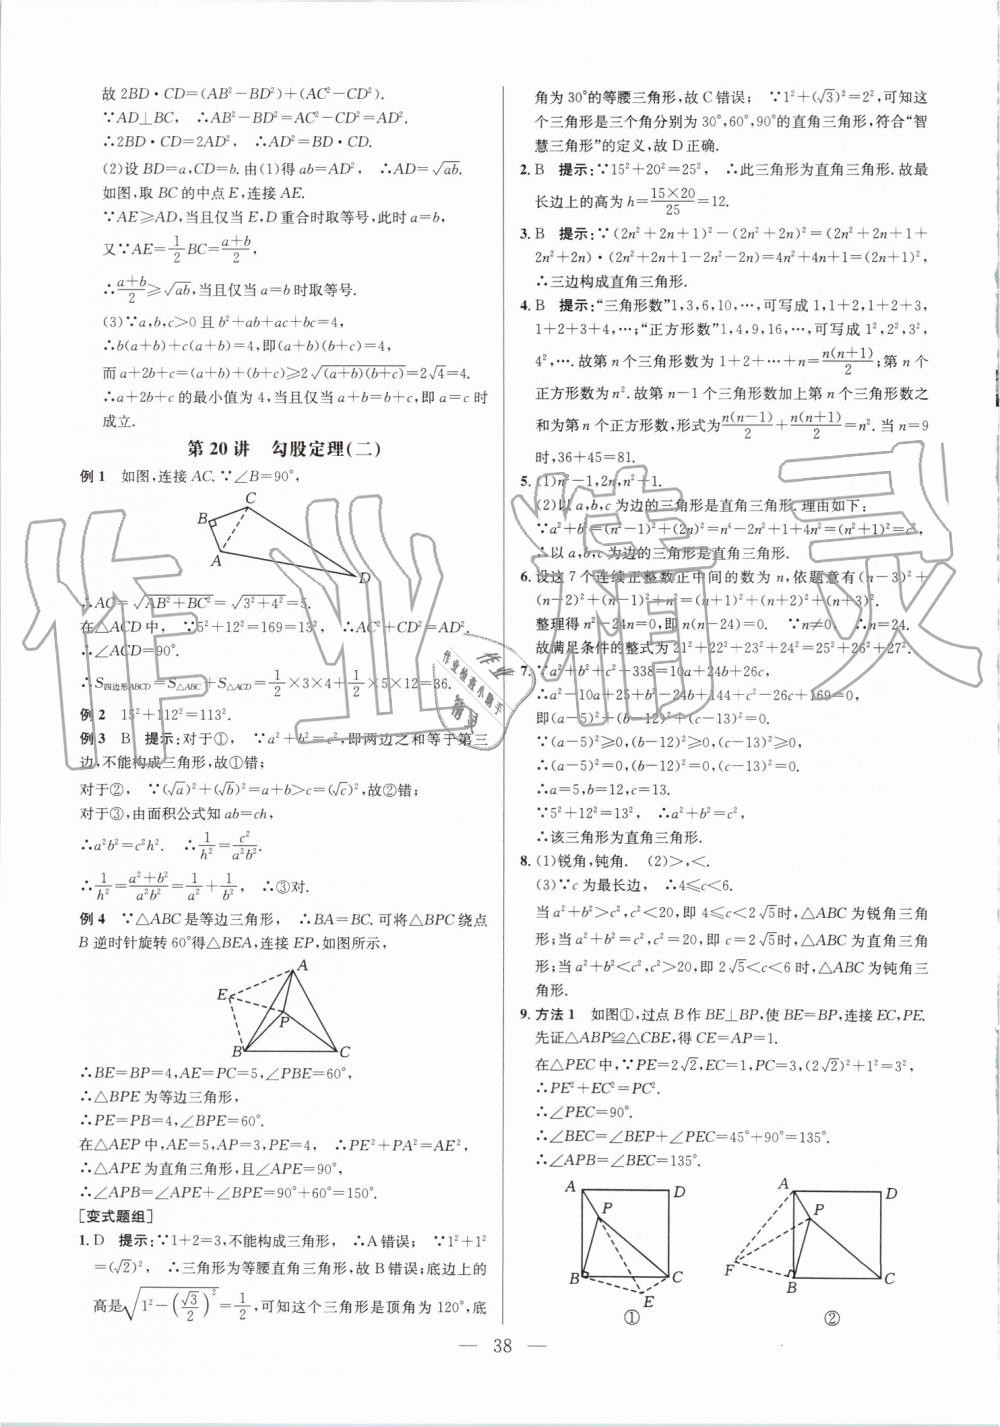 故 2BD·CD=(AB²-BD²)+(AC²-CD²).
∵AD⊥BC, ∴AB²-BD²=AC²-CD²=AD².
∴2BD·CD=2AD², ∴AD²=BD·CD.
(2)设 BD=a,CD=b. 由(1)得 ab=AD², ∴AD=√ab.
如图,取 BC 的中点 E,连接 AE.
∵AE≥AD,当且仅当 E,D 重合时取等号,此时 a=b,
又∵AE=1/2 BC=(a+b)/2,
∴(a+b)/2≥√ab,当且仅当 a=b 时取等号.
(3)∵a,b,c>0 且 b²+ab+ac+bc=4,
∴b(a+b)+c(a+b)=4,即(a+b)(b+c)=4,
而 a+2b+c=(a+b)+(b+c)≥2√((a+b)(b+c))=2√4=4.
∴a+2b+c 的最小值为 4,当且仅当 a+b=b+c,即 a=c 时
成立.
第 20 讲 勾股定理(二)
例 1 如图,连接 AC. ∵∠B=90°,
C
B
A
D
∴AC=√(AB²+BC²)=√(3²+4²)=5.
在△ACD 中, ∵5²+12²=169=13², ∴AC²+CD²=AD².
∴∠ACD=90°.
∴S四边形ABCD=S△ABC+S△ACD=1/2×3×4+1/2×5×12=36.
例 2 15²+112²=113².
例 3 B 提示:对于①, ∵a²+b²=c²,即两边之和等于第三
边,不能构成三角形,故①错;
对于②, ∵(√a)²+(√b)²=a+b>c=(√c)²,故②错;
对于③,由面积公式知 ab=ch,
∴a²b²=c²h². ∴1/h²=c²/(a²b²).
∴1/h²=(a²+b²)/(a²b²)=1/a²+1/b², ∴③对.
例 4 ∵△ABC 是等边三角形, ∴BA=BC. 可将△BPC 绕点
B 逆时针旋转 60°得△BEA,连接 EP,如图所示,
A
E
P
B C
∴BE=BP=4,AE=PC=5,∠PBE=60°.
∴△BPE 为等边三角形,
∴PE=PB=4,∠BPE=60°.
在△AEP 中,AE=5,AP=3,PE=4, ∴PE²+PA²=AE²,
∴△APE 为直角三角形,且∠APE=90°,
∴∠APB=∠APE+∠BPE=90°+60°=150°.
[变式题组]
1. D 提示:∵1+2=3,不能构成三角形, ∴A 错误; ∵1²+1²
=(√2)², ∴三角形为等腰直角三角形,故 B 错误;底边上的
高是√(1²-(√3/2)²)=1/2,可知这个三角形是顶角为 120°,底
角为 30°的等腰三角形,故 C 错误; ∵1²+(√3)²=2²,可知这
个三角形是三个角分别为 30°,60°,90°的直角三角形,符合“智
慧三角形”的定义,故 D 正确.
2. B 提示:∵15²+20²=25², ∴此三角形为直角三角形. 故最
长边上的高为 h=(15×20)/25=12.
3. B 提示:∵(2n²+2n+1)²-(2n²+2n)²=(2n²+2n+1+
2n²+2n)·(2n²+2n+1-2n²-2n)=4n²+4n+1=(2n+1)²,
∴三边构成直角三角形.
4. B 提示:“三角形数”1,3,6,10,…,可写成 1,1+2,1+2+3,
1+2+3+4,…;“正方形数”1,4,9,16,…,可写成 1²,2²,3²,
4²,…. 故第 n 个三角形数为 1+2+…+n=n(n+1)/2;第 n 个
正方形数为 n². 故第 n-1 个三角形数加上第 n 个三角形数之
和为第 n 个正方形数,形式为n(n-1)/2+n(n+1)/2=n². 当 n=9
时,36+45=81.
5. (1)n²-1,2n,n²+1.
(2)以 a,b,c 为边的三角形是直角三角形. 理由如下:
∵a²+b²=(n²-1)²+(2n)²=n⁴-2n²+1+4n²=(n²+1)²=c²,
∴以 a,b,c 为边的三角形是直角三角形.
6. 设这 7 个连续正整数正中间的数为 n,依题意有(n-3)²+
(n-2)²+(n-1)²+n²=(n+1)²+(n+2)²+(n+3)².
整理得 n²-24n=0,即 n(n-24)=0. ∵n≠0, ∴n=24.
故满足条件的整式为 21²+22²+23²+24²=25²+26²+27².
7. ∵a²+b²+c²+338=10a+24b+26c,
∴a²-10a+25+b²-24b+144+c²-26c+169=0,
即(a-5)²+(b-12)²+(c-13)²=0.
∵(a-5)²≥0,(b-12)²≥0,(c-13)²≥0,
∴(a-5)²=0,(b-12)²=0,(c-13)²=0.
∴a=5,b=12,c=13.
∵5²+12²=13², ∴a²+b²=c²,
∴该三角形为直角三角形.
8. (1)锐角,钝角. (2)>,<.
(3)∵c 为最长边, ∴4≤c<6.
当 a²+b²>c²,c²<20,即 4≤c<2√5时,△ABC 为锐角三角
形;当 a²+b²=c²,c²=20,即 c=2√5时,△ABC 为直角三角
形;当 a²+b²<c²,c²>20,即 2√5<c<6 时,△ABC 为钝角三
角形.
9. 方法 1 如图①,过点 B 作 BE⊥BP,使 BE=BP,连接 EC,PE.
先证△ABP≌△CBE,得 CE=AP=1.
在△PEC 中,∵PE=2√2,EC=1,PC=3,(2√2)²+1²=3²,
∴PE²+EC²=PC².
∴∠PEC=90°.
∴∠BEC=∠BEP+∠PEC=45°+90°=135°.
∴∠APB=∠BEC=135°.
A D
P
B C
E
①
A D
P
F
B C
②
38
作业精灵
作业
作业检查小助手
精灵